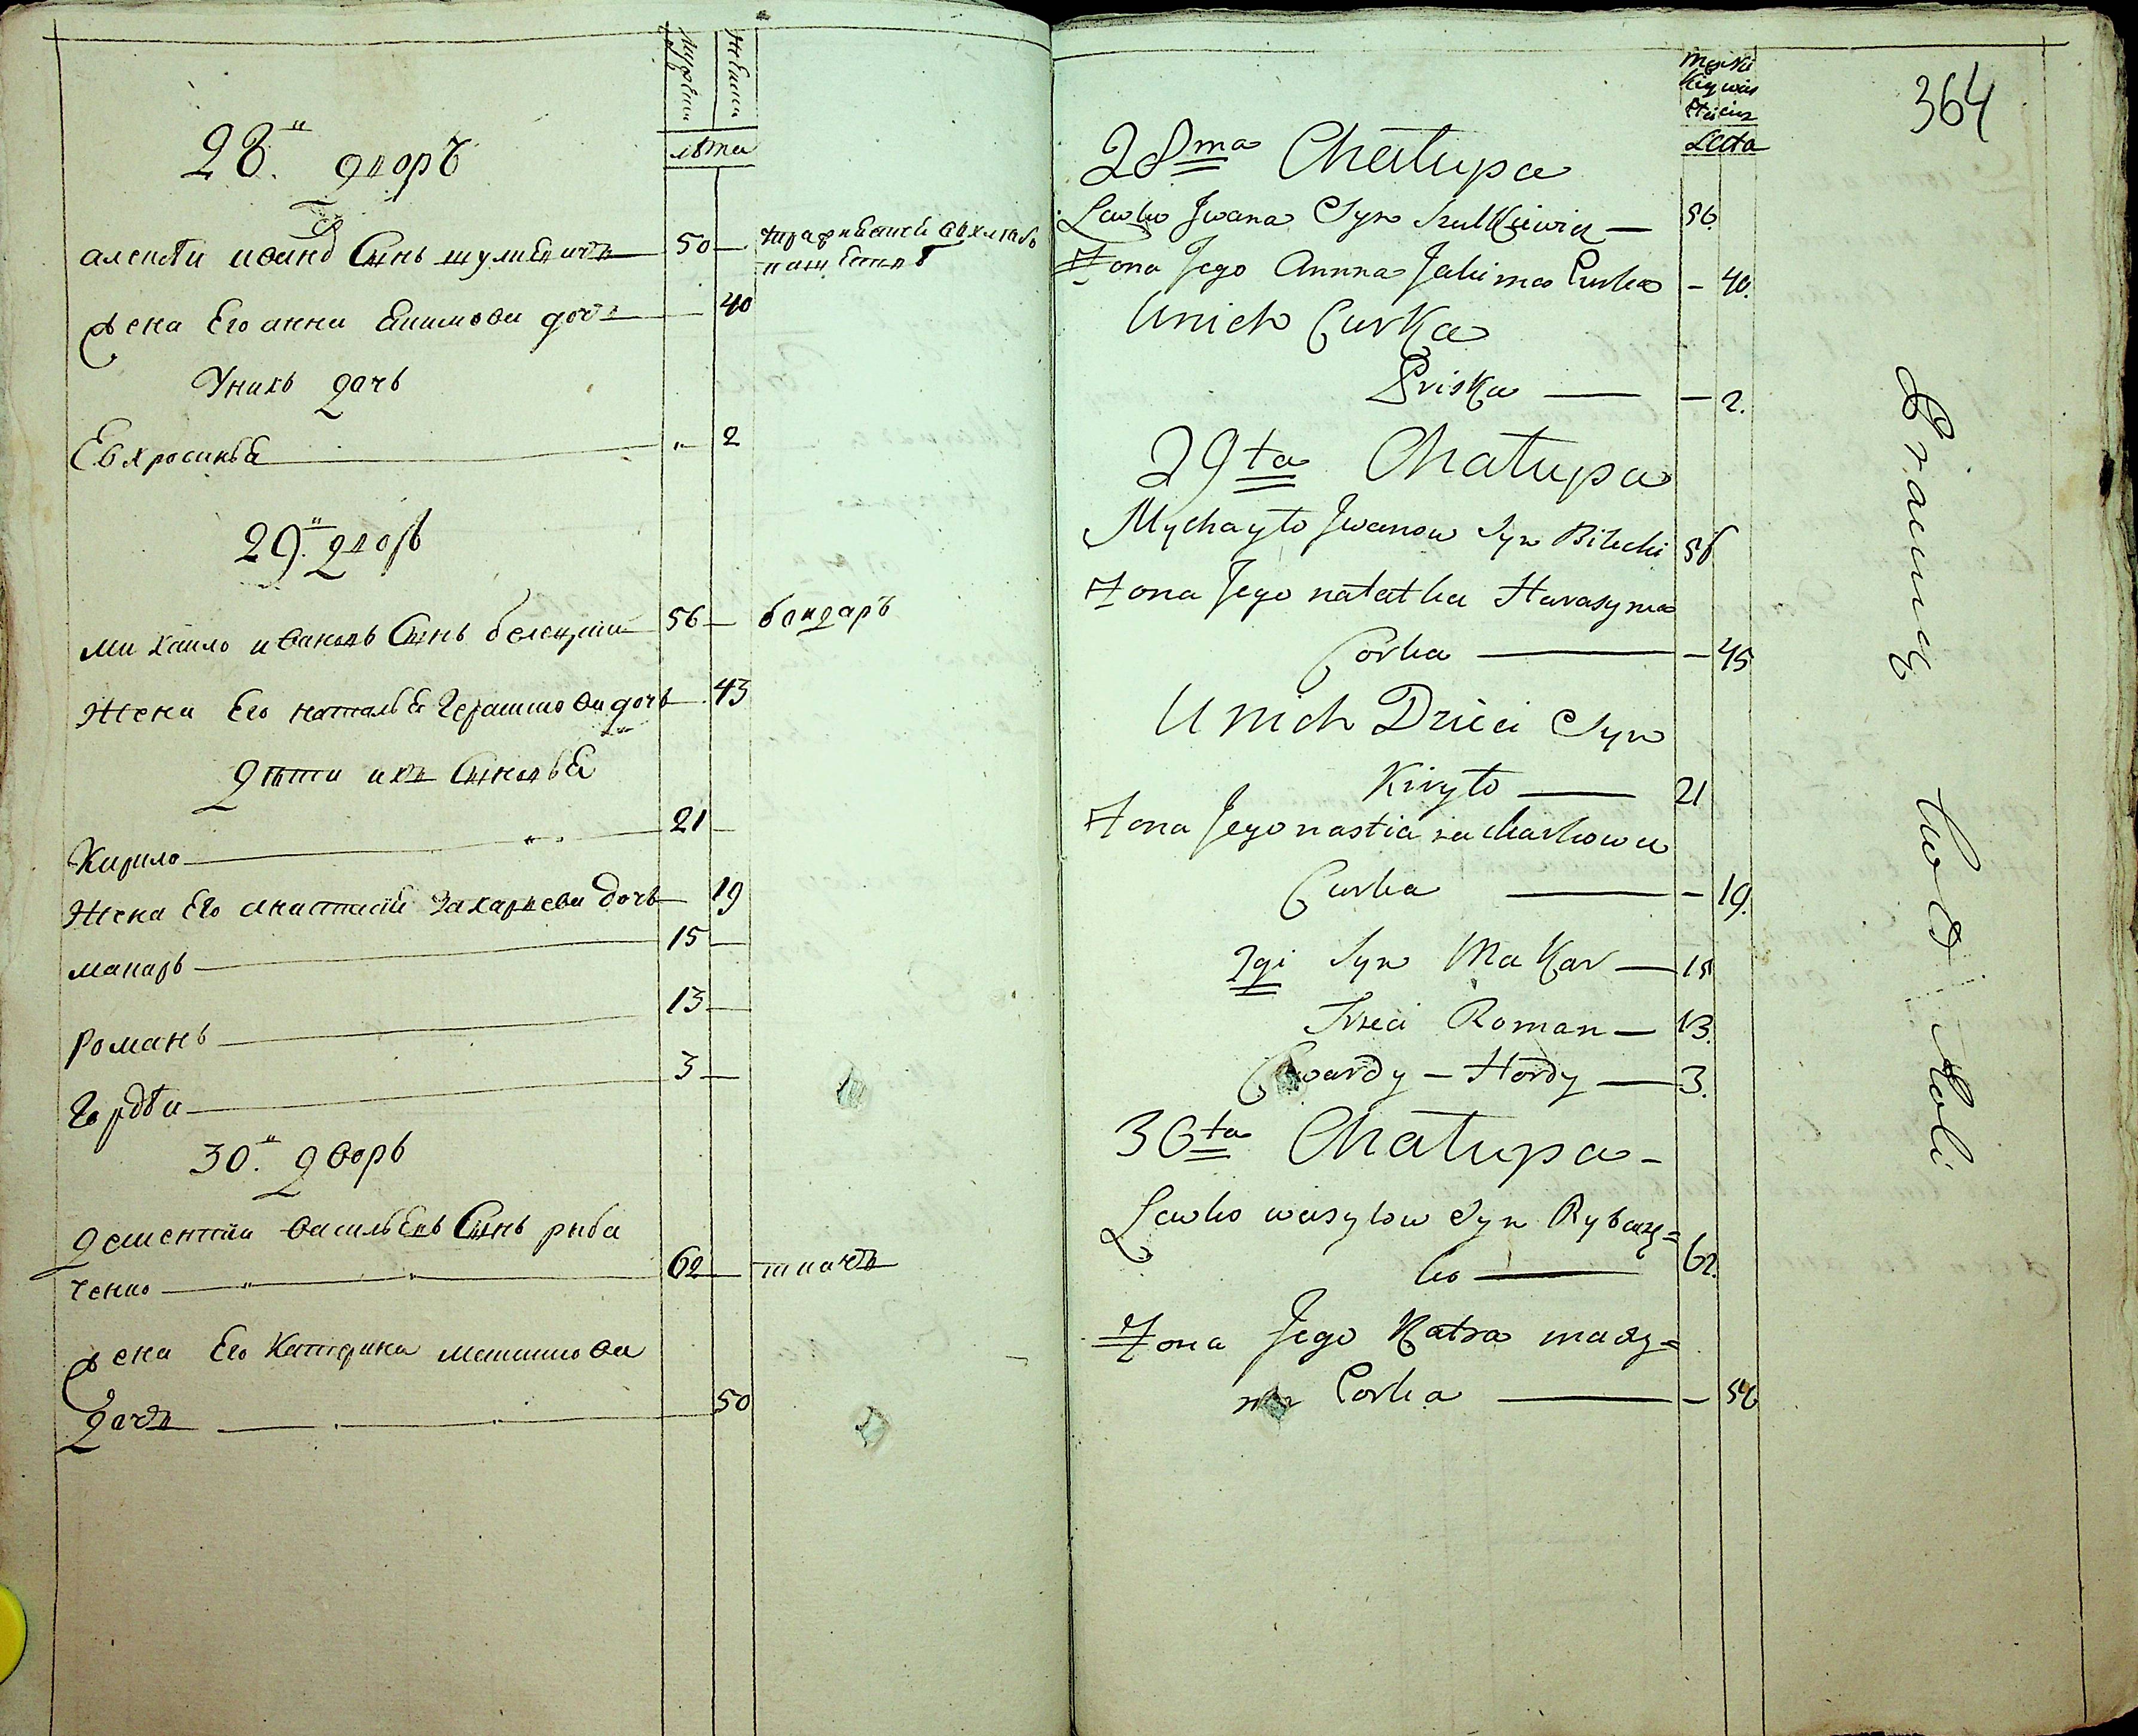 мужеска
женска
лѣта
28.й дворъ
алексѣй ивановъ Сынъ шулкевичъ — 50 —
жена Его анна Екимова дочь — 40
Унихъ дочь
Евхросинья — " 2
29.й дворъ
михайло ивановъ Сынъ белецкий 56 — бондаръ
Жена Его наталья Герасимова дочь 43
Дѣти ихъ Сыновья
Кирило — 21 —
Жена Его анастасия Захариева дочь — 19
макаръ — 15 —
романъ — 13 —
Гордѣй — 3 —
30.й дворъ
дементий васильевъ Сынъ рыба
ченко — 62 — ткачъ
жена Его Катерина максимова
дочь — 50
364
Męski
Lata
28ma Chałupa
Lawko Jwana Syn Szulkiewicz — 50.
Żona Jego Annna Jakima Curka — 40.
Unich Curka
Priska — — 2.
29ta Chałupa
Mychayło Jwanow Syn Bilecki 56
Żona Jego natałka Harasyma
Corka — — 45
Unich Dzieci Syn
Kiryło — 21
Żona Jego nastia zacharkowa
Curka — — 19.
2gi Syn MaKar — 15
Trzeci Roman — 13.
Czwardy – Hordy — 3.
30ta Chałupa –
Lawko wasylow Syn Rybacz=
ko — 62.
Żona Jego Katra maxy=
ma Corka — — 50